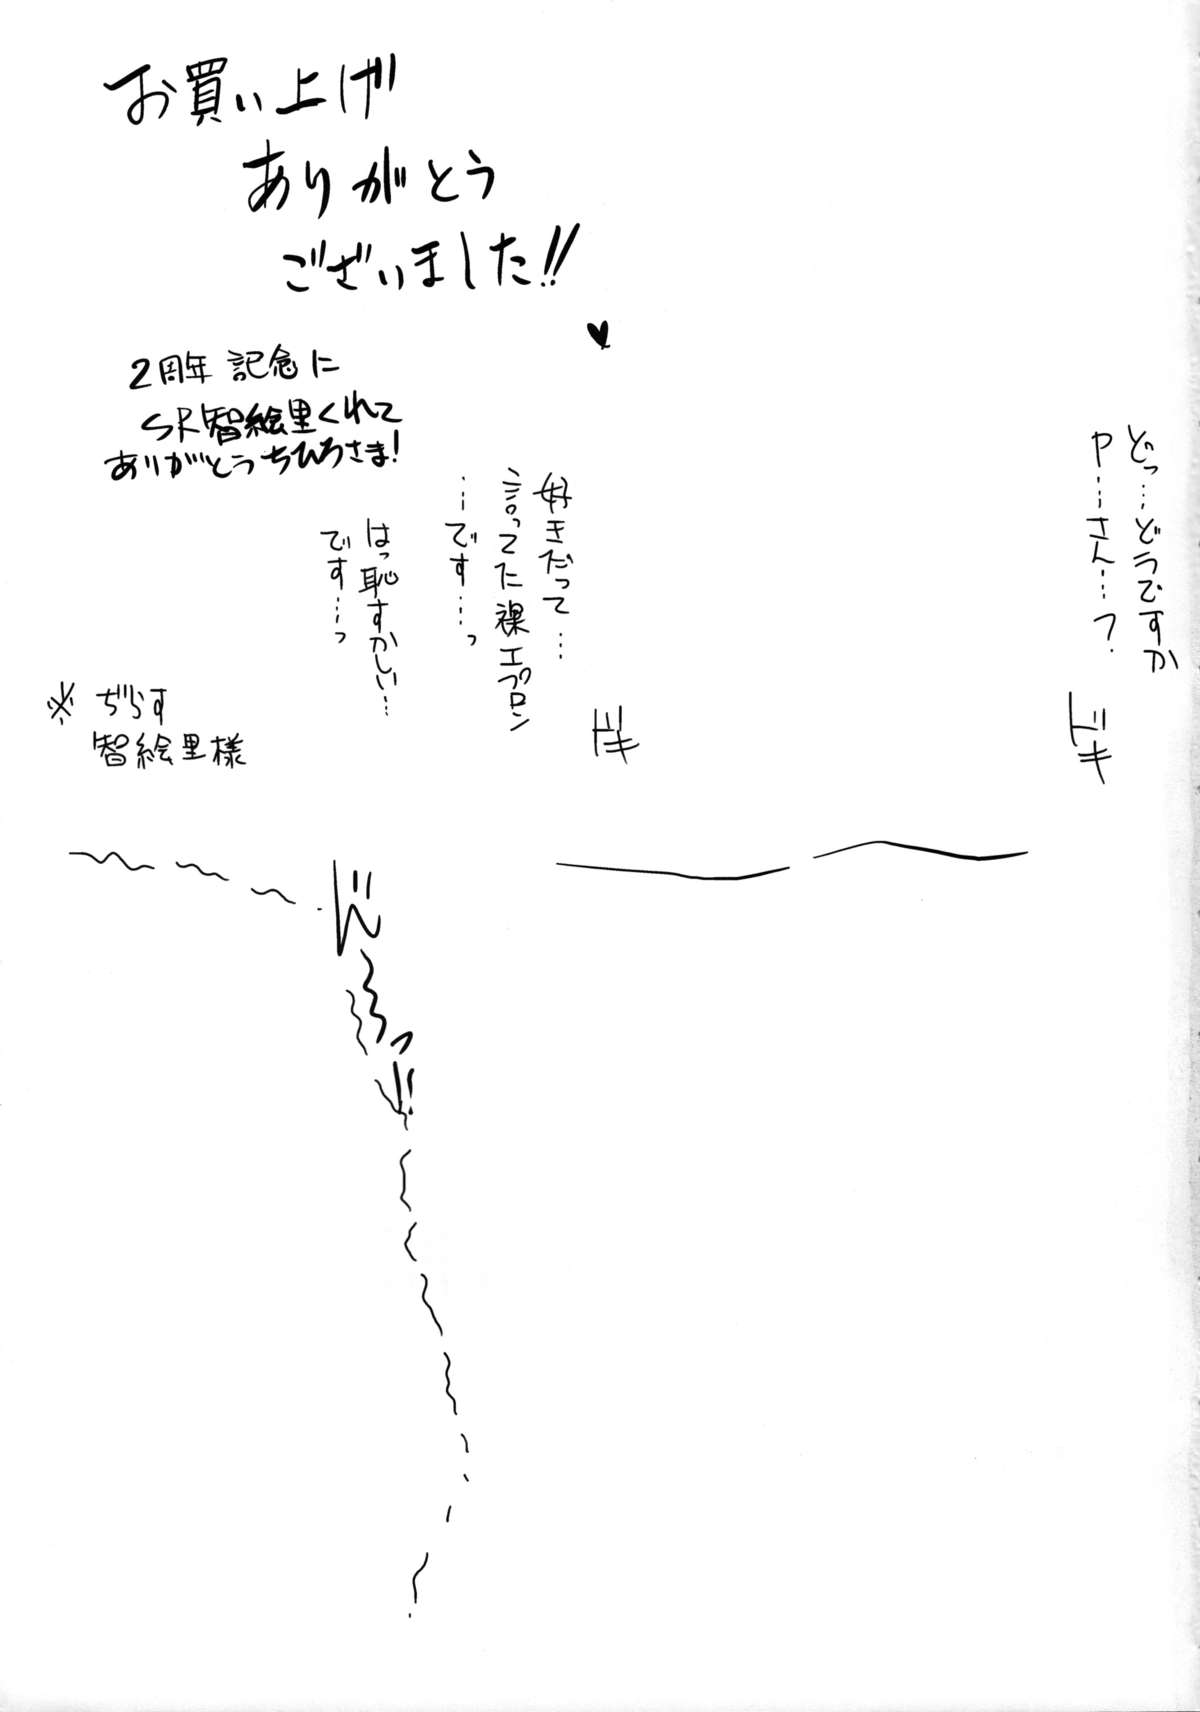 お買い上げ
ありがとう
ございました!!
♥
2周年 記念に
SR智絵里くれて
ありがとうちひろさま!
どっ…どうですか
P……さん…?
ドキ
好きだって…
言ってた裸エプロン
…です…っ
はっ恥すかしい…
です…っ
ドキ
※ぢらす
智絵里様